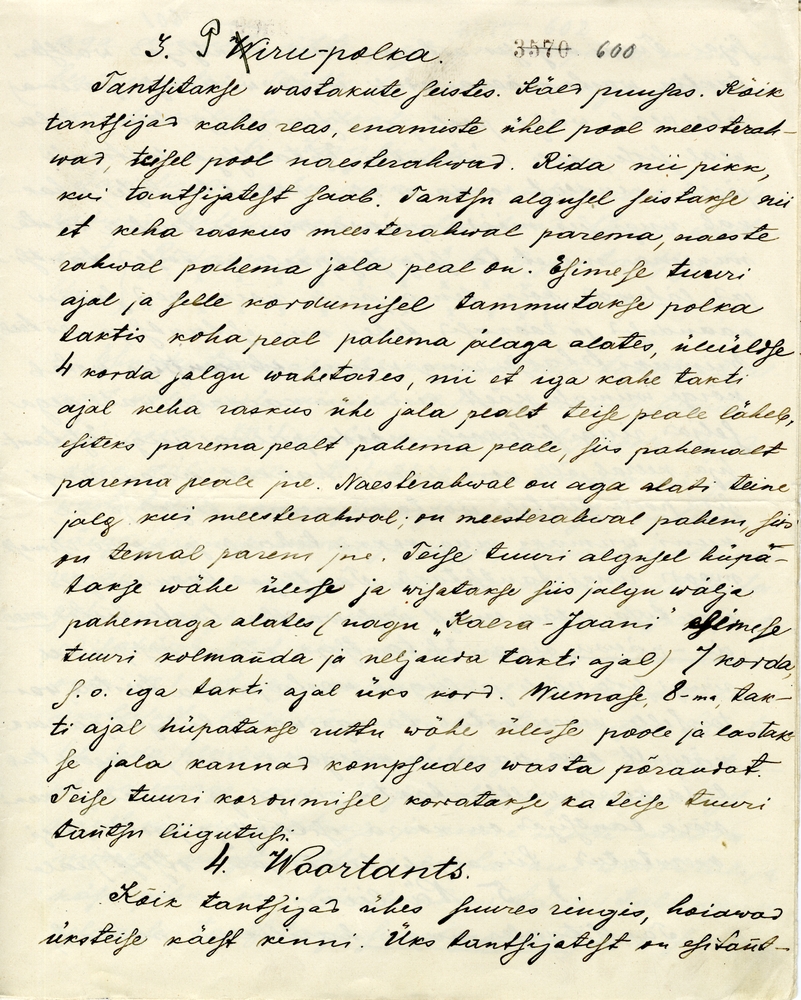 3. P Wiru-polka. 3570 600
Tantsitakse wastakute seistes. Käed puusas. Kõik
tantsijad kahes reas, enamiste ühel pool meesterah-
wad, teisel pool naesterahwad. Rida nii pikk,
kui tantsijatest saab. Tantsu algusel seistakse nii
et keha raskus meesterahwal parema, naeste
rahwal pahema jala peal on. Esimese tuuri
ajal ja selle kordumisel tammutakse polka
taktis koha peal pahema jalaga alates, üleüldse
4 korda jalgu wahetades, nii et iga kahe takti
ajal keha raskus ühe jala pealt teise peale läheb,
esiteks parema pealt pahema peale, siis pahemalt
parema peale jne. Naesterahwal on aga alati teine
jalg kui meesterahwal; on meesterahwal pahem, siis
on temal parem jne. Teise tuuri algusel hüpä-
takse wähe ülesse ja wisatakse siis jalgu wälja
pahemaga alates (nagu „Kaera-Jaani" esimese
tuuri kolmanda ja neljanda takti ajal) 7 korda,
s. o. iga takti ajal üks kord. Wiimase, 8-ma, tak-
ti ajal hüpatakse ruttu wähe ülesse poole ja lastak
se jala kannad kompsudes wasta põrandat.
Teise tuuri kordumisel korratakse ka teise tuuri
tantsu liigutusi.
4. Woortants.
Kõik tantsijad ühes suures ringis, hoiawad
üksteise käest kinni. Üks tantsijatest on esitant-